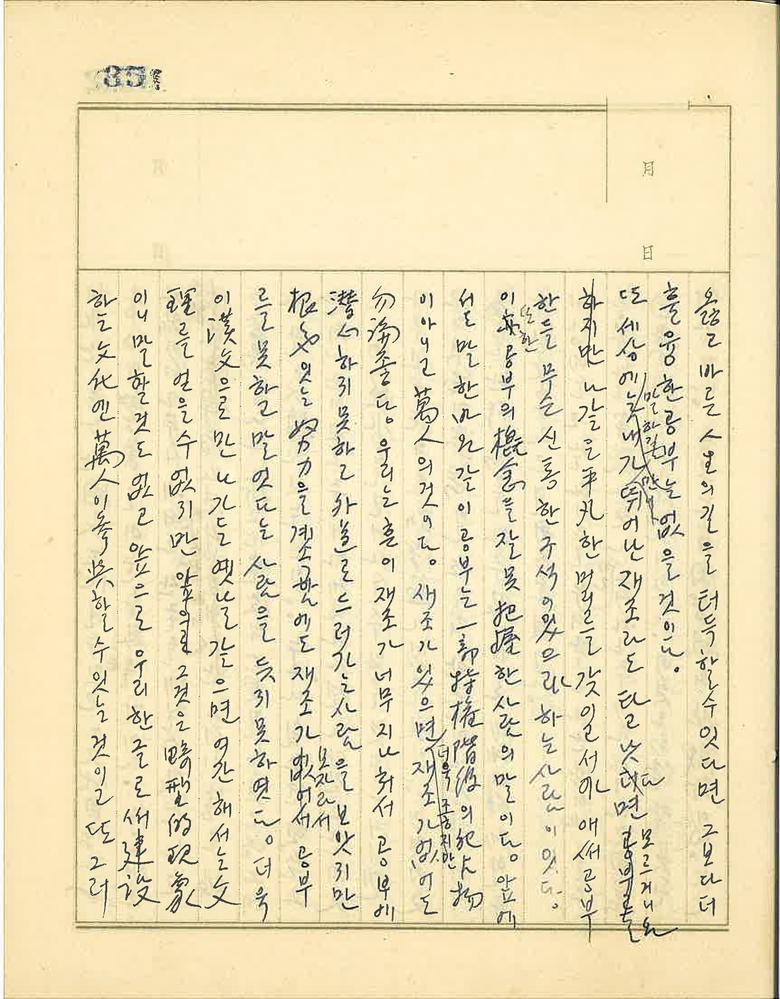 35
月
日
옳고 바른 人生의 길을 터득할 수 있다면 그보다 더
훌융한 공부는 없을 것이다.
또 세상에는 말하길 만일 내가 뛰어난 재조라도 타고 낫다면 모르거니와
하지만 나 같은 平凡한 머리를 갖인 사람이 애써 공부
한들 무슨 신통한 구석이 있으랴 하는 사람이 있다.
이 또한 공부의 槪念을 잘못 把握한 사람의 말이다. 앞에
서도 말한 바와 같이 공부는 一部 特權階級의 犯占物
이 아니고 萬人의 것이다. 재조가 있으면 더욱 조흥지만 재조가 없어도
勿論 좋다. 우리는 흔이 재조가 너무 지나쳐서 공부에
潛心하지 못하고 外道로 드러가는 사람을 보앗지만
根氣 있는 努力을 계속함에도 재조가 모자라서 공부
를 못하고 말엇다는 사람을 듯지 못하엿다. 더욱
이 漢文으로만 나가든 옛날 같으면 여간 해서는 文
理를 얻을 수 없지만 그것은 畸型的 現象
이니 말할 것도 없고 앞으로 우리 한글로서 建設
하는 文化엔 萬人이 參與할 수 있는 것이고 또 그러